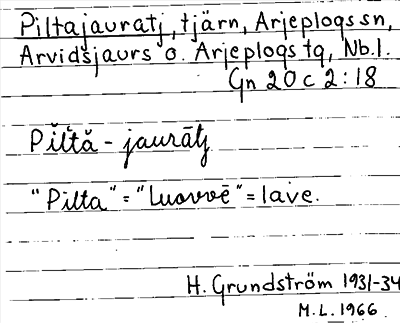 Piltajauratj, tjärn, Arjeplogs sn,
Arvidsjaurs o. Arjeplogs tg, Nb.l.
Gn 20 c 2:18
Pĭl̆tă - jaurātj
"Pilta" = "Luovvē" = lave.
H. Grundström 1931-34
M.L. 1966